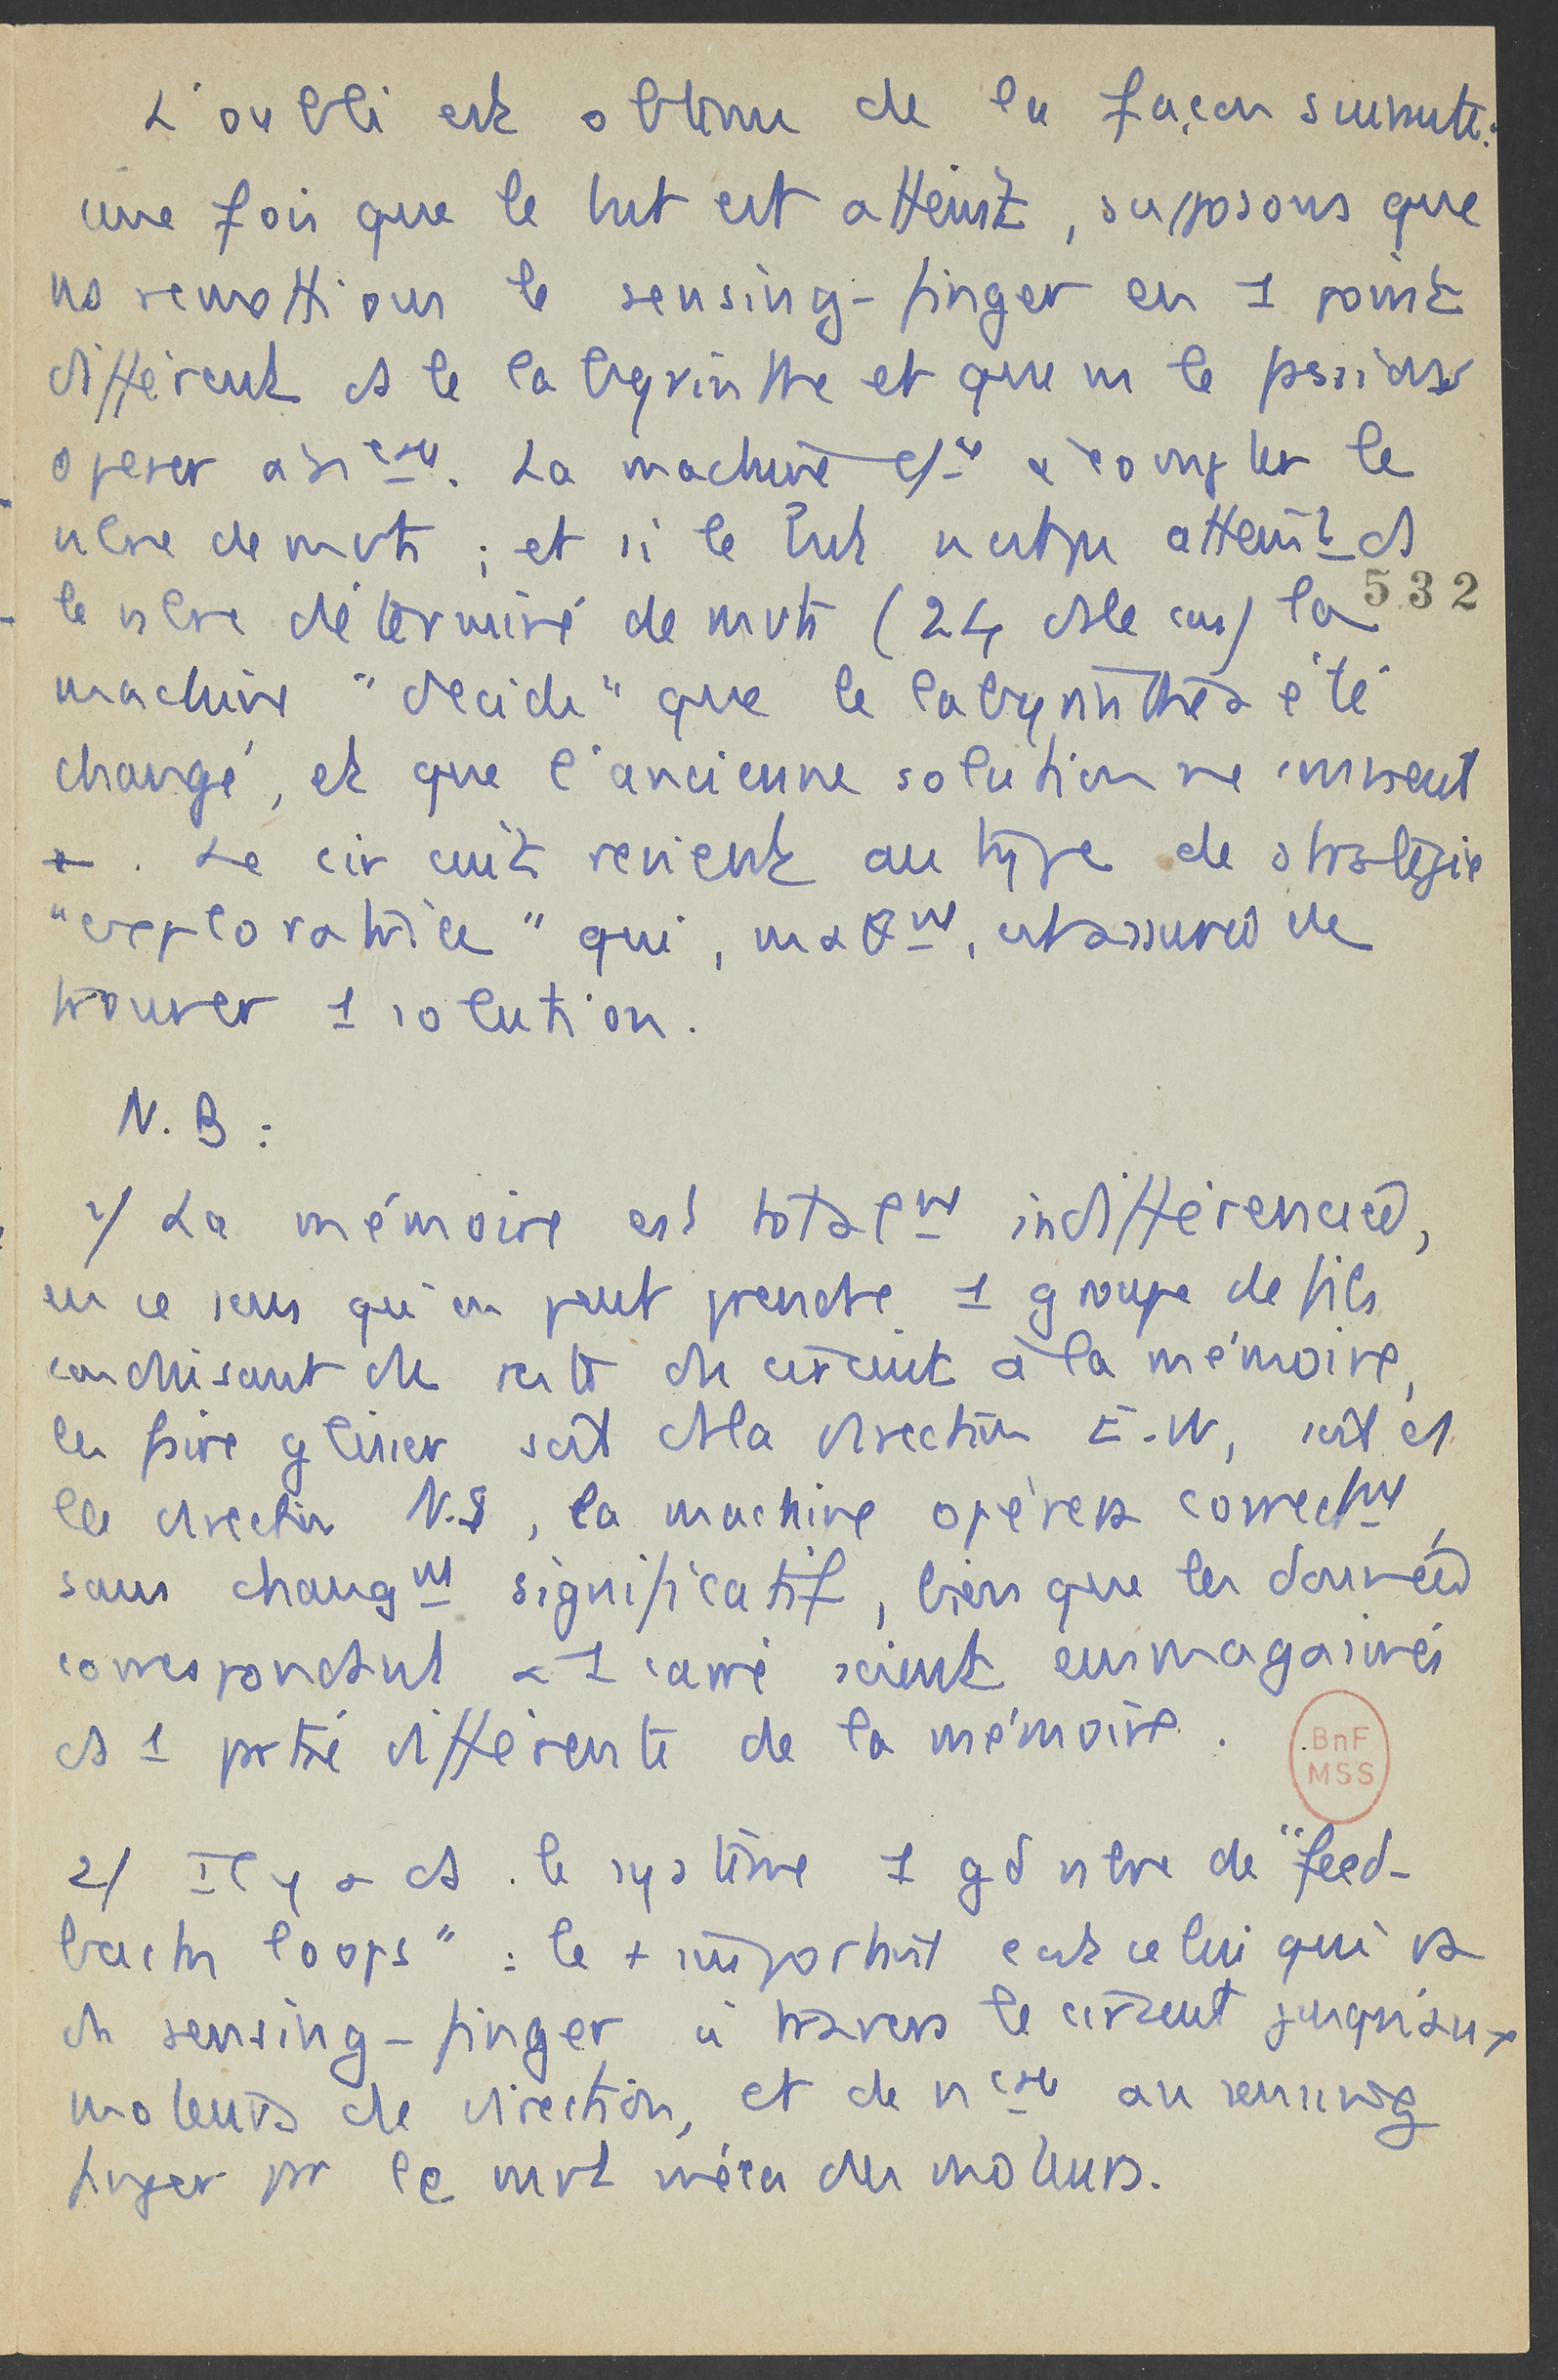 L'oubli est obtenu de la façon suivante:
une fois que le but est atteint, supposons que
ns remettions le sensing-finger en 1 point
différent ds le labyrinthe et que ns le fassions
opérer à La machine à compter le
nbre de mvts ; et si le but n'est pas atteint ds
le nbre déterminé de mvts (24 ds le cas) la
532
machine "décide" que le labyrinthe a été
changé, et que l'ancienne solution ne convient
+. Le circuit revient au type de stratégie
"exploratrice" qui, est assurée de
trouver 1 solution.
N.B :
1/ La mémoire est totalnt indifférenciée,
en ce sens qu'on peut prendre 1 groupe de fils
conduisant du reste du circuit à la mémoire,
les faire glisser soit ds la direction E-W, soit ds
la direction N.S, la machine opérera correctnt,
sans changnt significatif, bien que les données
correspondant à 1 carré soient emmagasinées
ds 1 partie différente de la mémoire.
BnF
MSS
2/ Il y a ds le système 1 gd nbre de "feed-
backs loops" : le + important est celui qui va
du sensing-finger à travers le circuit jusqu'aux
moteurs de direction, et de au sensing
finger par le mvt méca des moteurs.